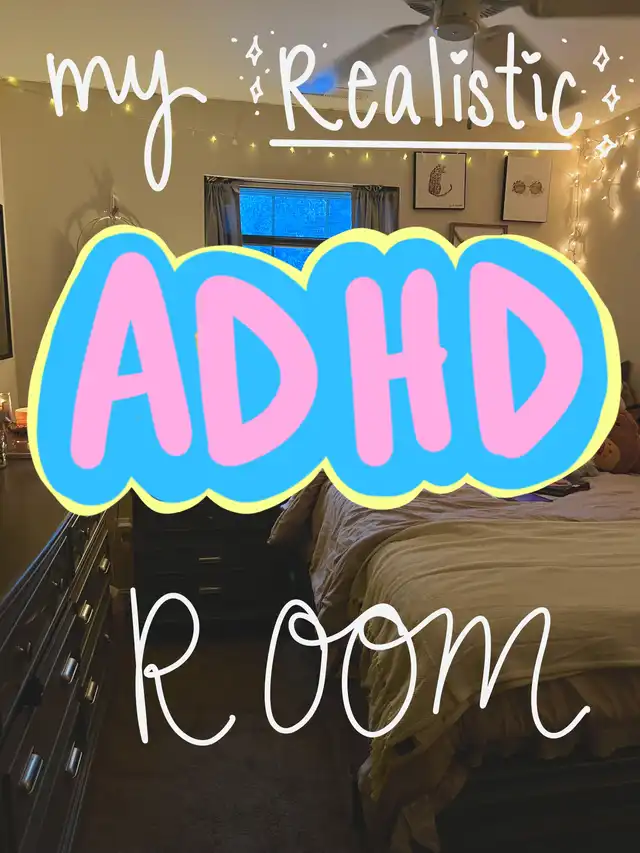 my Realistic
ADHD
Room